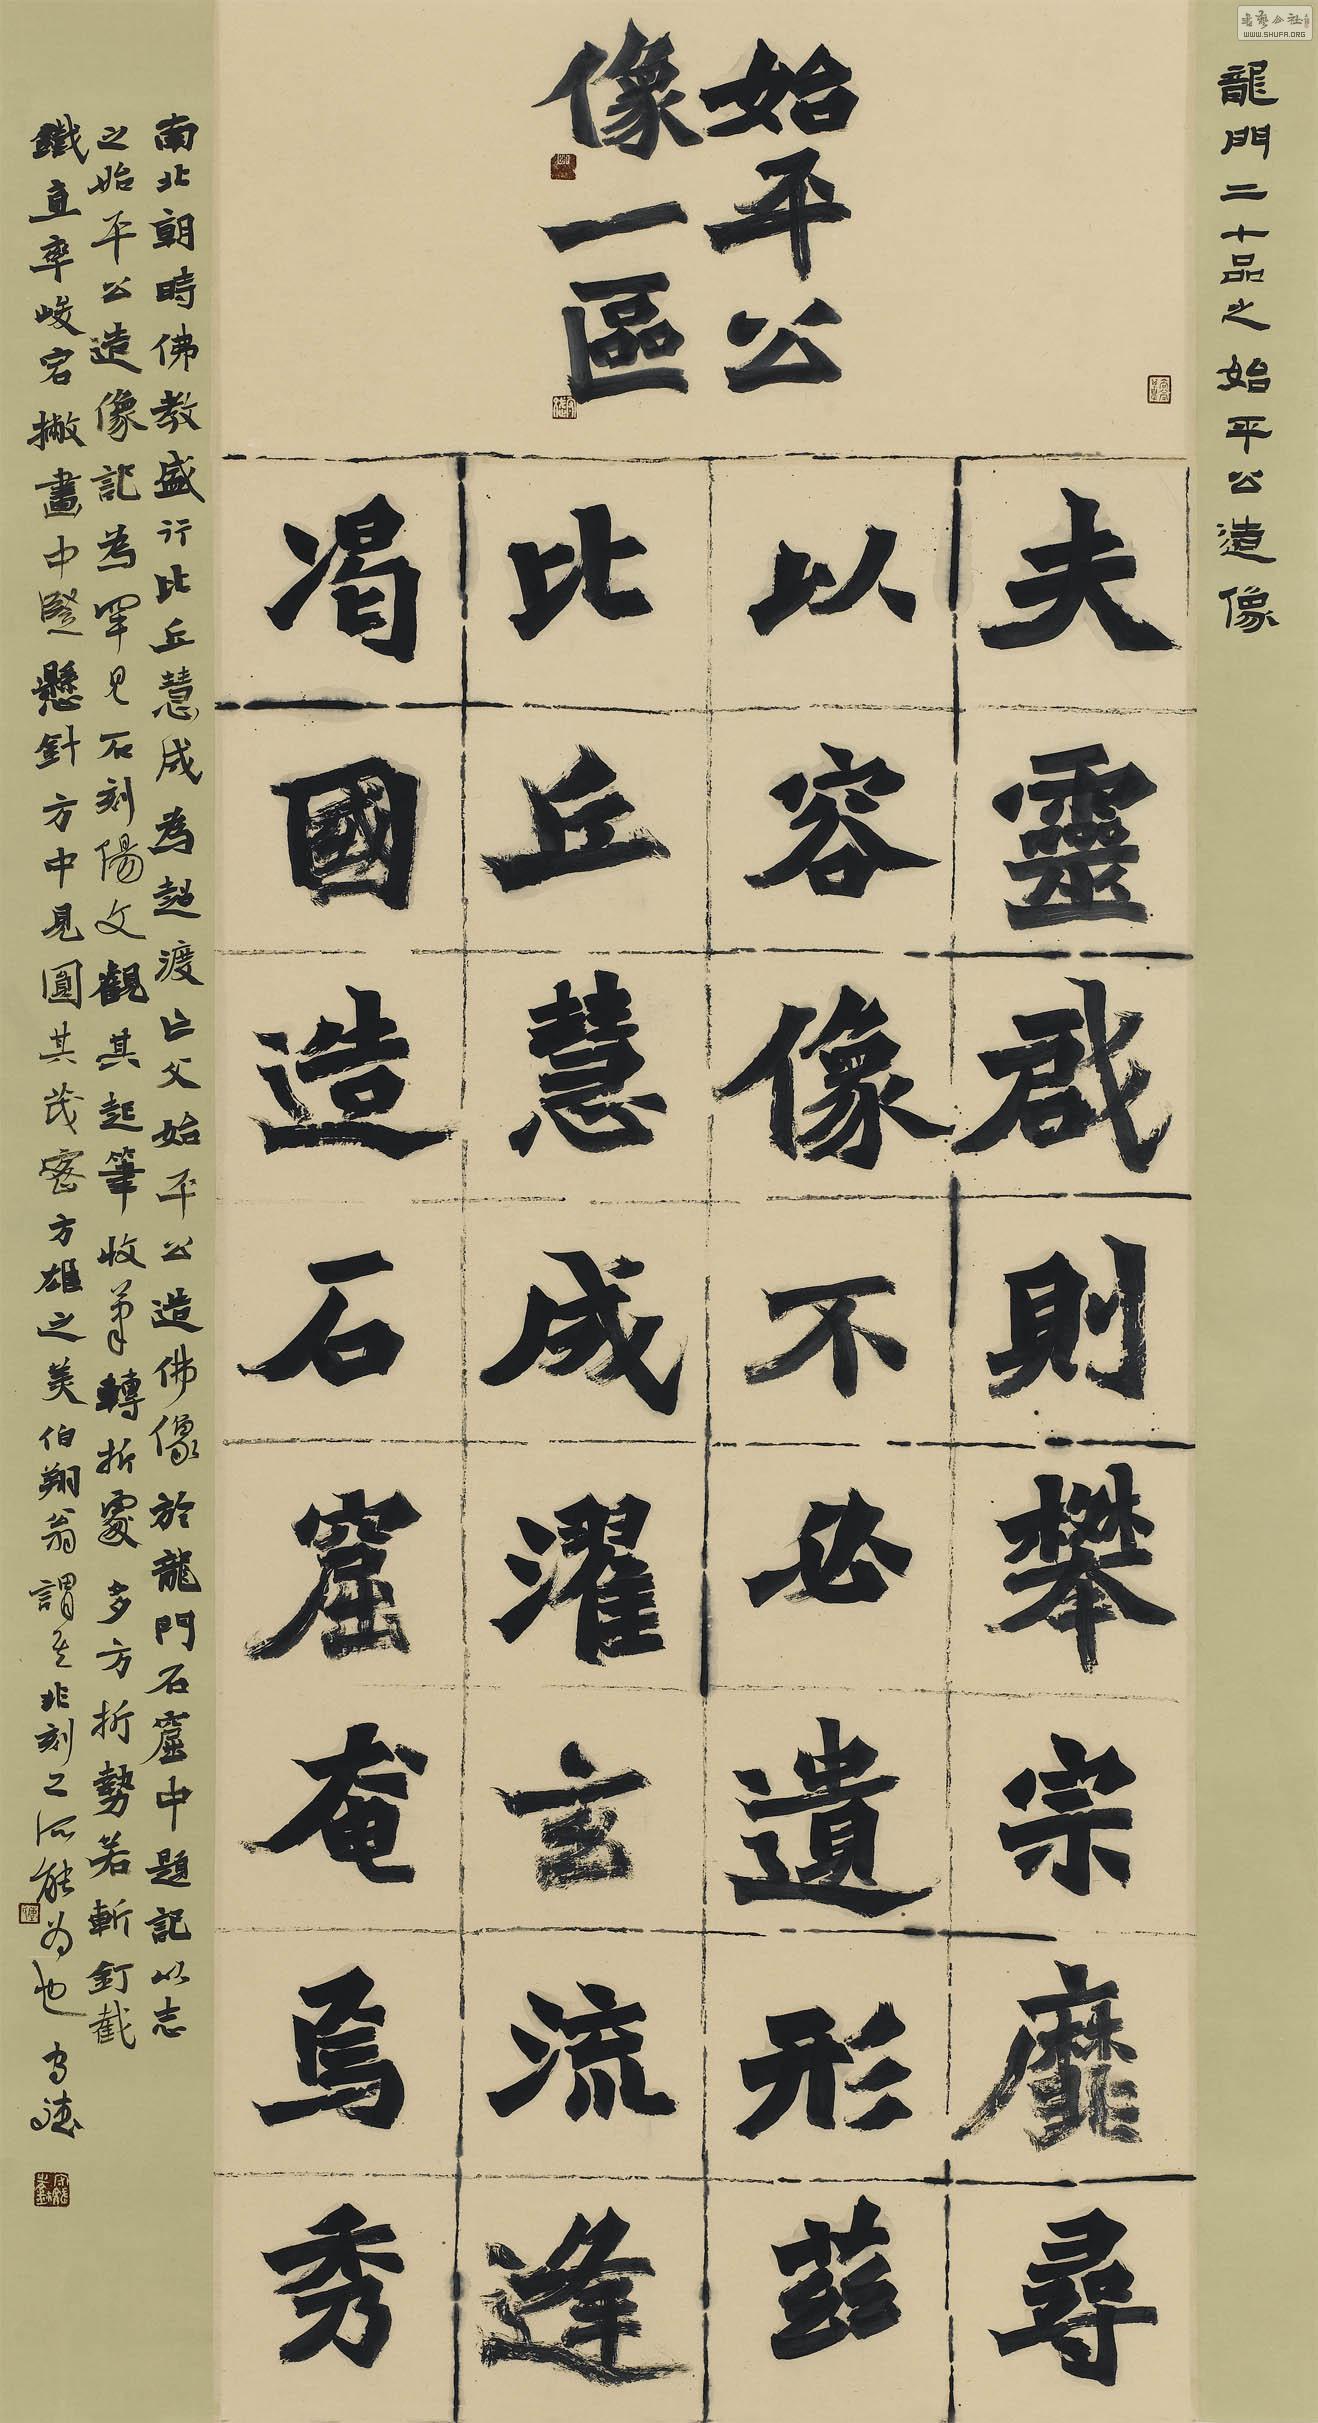 龍門二十品之始平公造像
始平公
像一區
夫靈啟則攀宗靡尋
以容像不必遺形茲
比丘慧成濯玄流逢
渴國造石窟奄焉秀
南北朝時佛教盛行比丘慧成為超渡亡父始平公造佛像於龍門石窟中題記以志
之始平公造像記為罕見石刻陽文觀其起筆收筆轉折處多方折勢若斬釘截
鐵直率峻宕撇畫中豎懸針方中見圓其茂密方雄之美伯翔翁謂是非刻工所能為也
WWW.SHUFA.ORG